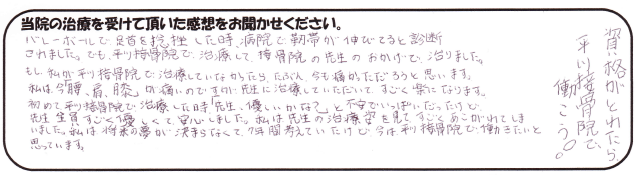 当院の治療を受けて頂いた感想をお聞かせください。
バレーボールで、足首を捻挫した時、病院で靭帯が伸びてると診断
されました。でも、平川接骨院で、治療して、接骨院の先生のおかげで、治りました。
もし、私が平川接骨院で治療していなかったら、たぶん、今も痛かっただろうと思います。
私は、今「腰、肩、膝」が痛いのですが、先生に治療していただいて、すごく楽になります。
初めて平川接骨院で治療した時「先生、優しいかな?」と不安でいっぱいだったけど、
先生全員すごく優しくて、安心しました。私は先生の治療姿を見て、すごくあこがれてしま
いました。私は将来の夢が決まらなくて、7年間考えていたけど今は平川接骨院で、働きたいと
思っています。
資格がとれたら
平川接骨院で、
働こう!